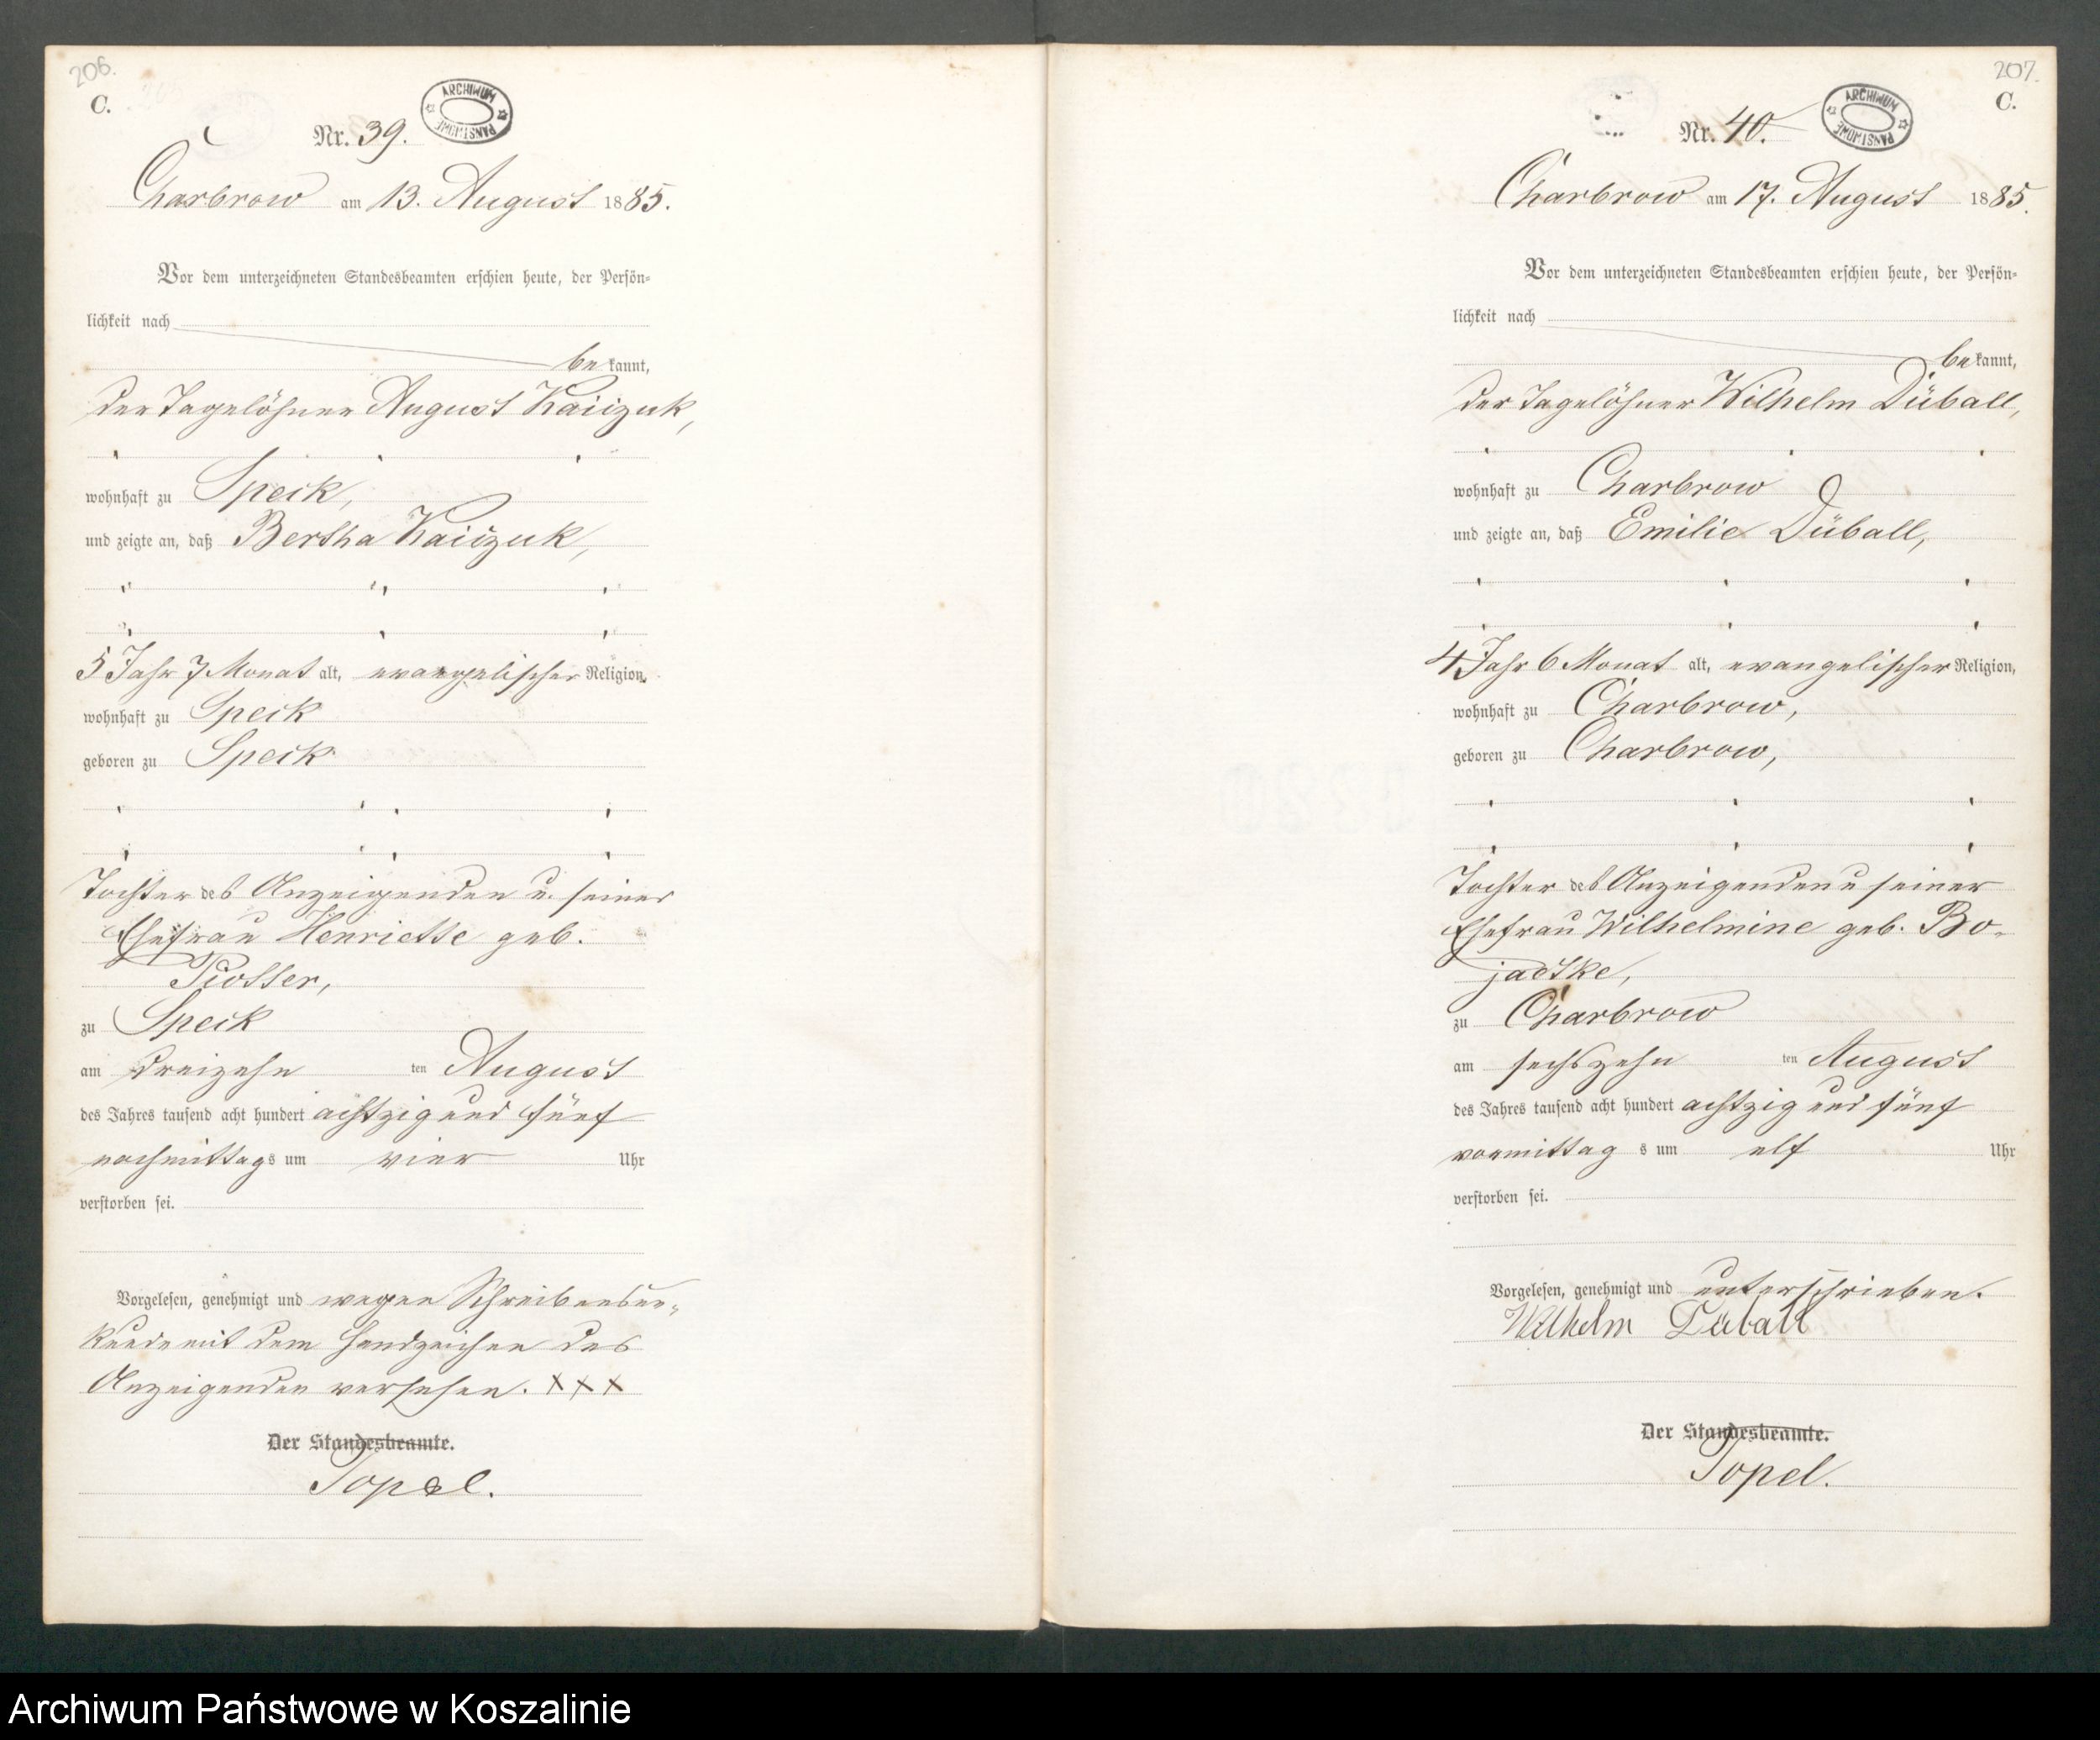 206.
C.
ARCHIWUM PAŃSTWOWE
Nr. 39.
Charbrow am 13. August 1885.
Vor dem unterzeichneten Standesbeamten erschien heute, der Persön-
lichkeit nach
bekannt,
der Tagelöhner August Kaiizuk,
wohnhaft zu Speck,
und zeigte an, daß Bertha Kaiizuk,
5 Jahr 7 Monat alt, evangelischer Religion,
wohnhaft zu Speck
geboren zu Speck
Tochter des Anzeigenden u. seiner
Ehefrau Henriette geb.
zu Speck
am dreizehn ten August
des Jahres tausend acht hundert achtzig und fünf
nachmittags um vier Uhr
verstorben sei.
Vorgelesen, genehmigt und wegen Schreibensun-
kunde mit dem Handzeichen des
Anzeigenden versehen. XXX
Der Standesbeamte.
Topel.
207.
C.
ARCHIWUM PAŃSTWOWE
Nr. 40.
Charbrow am 17. August 1885.
Vor dem unterzeichneten Standesbeamten erschien heute, der Persön-
lichkeit nach
bekannt,
der Tagelöhner Wilhelm Düball,
wohnhaft zu Charbrow
und zeigte an, daß Emilie Düball,
4 Jahr 6 Monat alt, evangelischer Religion,
wohnhaft zu Charbrow,
geboren zu Charbrow,
Tochter des Anzeigenden u seiner
Ehefrau Wilhelmine geb. Bo-
jadtke,
zu Charbrow
am sechszehn ten August
des Jahres tausend acht hundert achtzig und fünf
vormittag s um elf Uhr
verstorben sei.
Vorgelesen, genehmigt und unterschrieben.
Wilhelm Düball
Der Standesbeamte.
Topel.
Archiwum Państwowe w Koszalinie